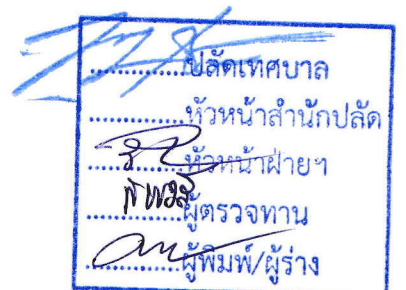 ..............ปลัดเทศบาล
..............หัวหน้าสำนักปลัด
..............หัวหน้าฝ่ายฯ
..............ผู้ตรวจทาน
..............ผู้พิมพ์/ผู้ร่าง